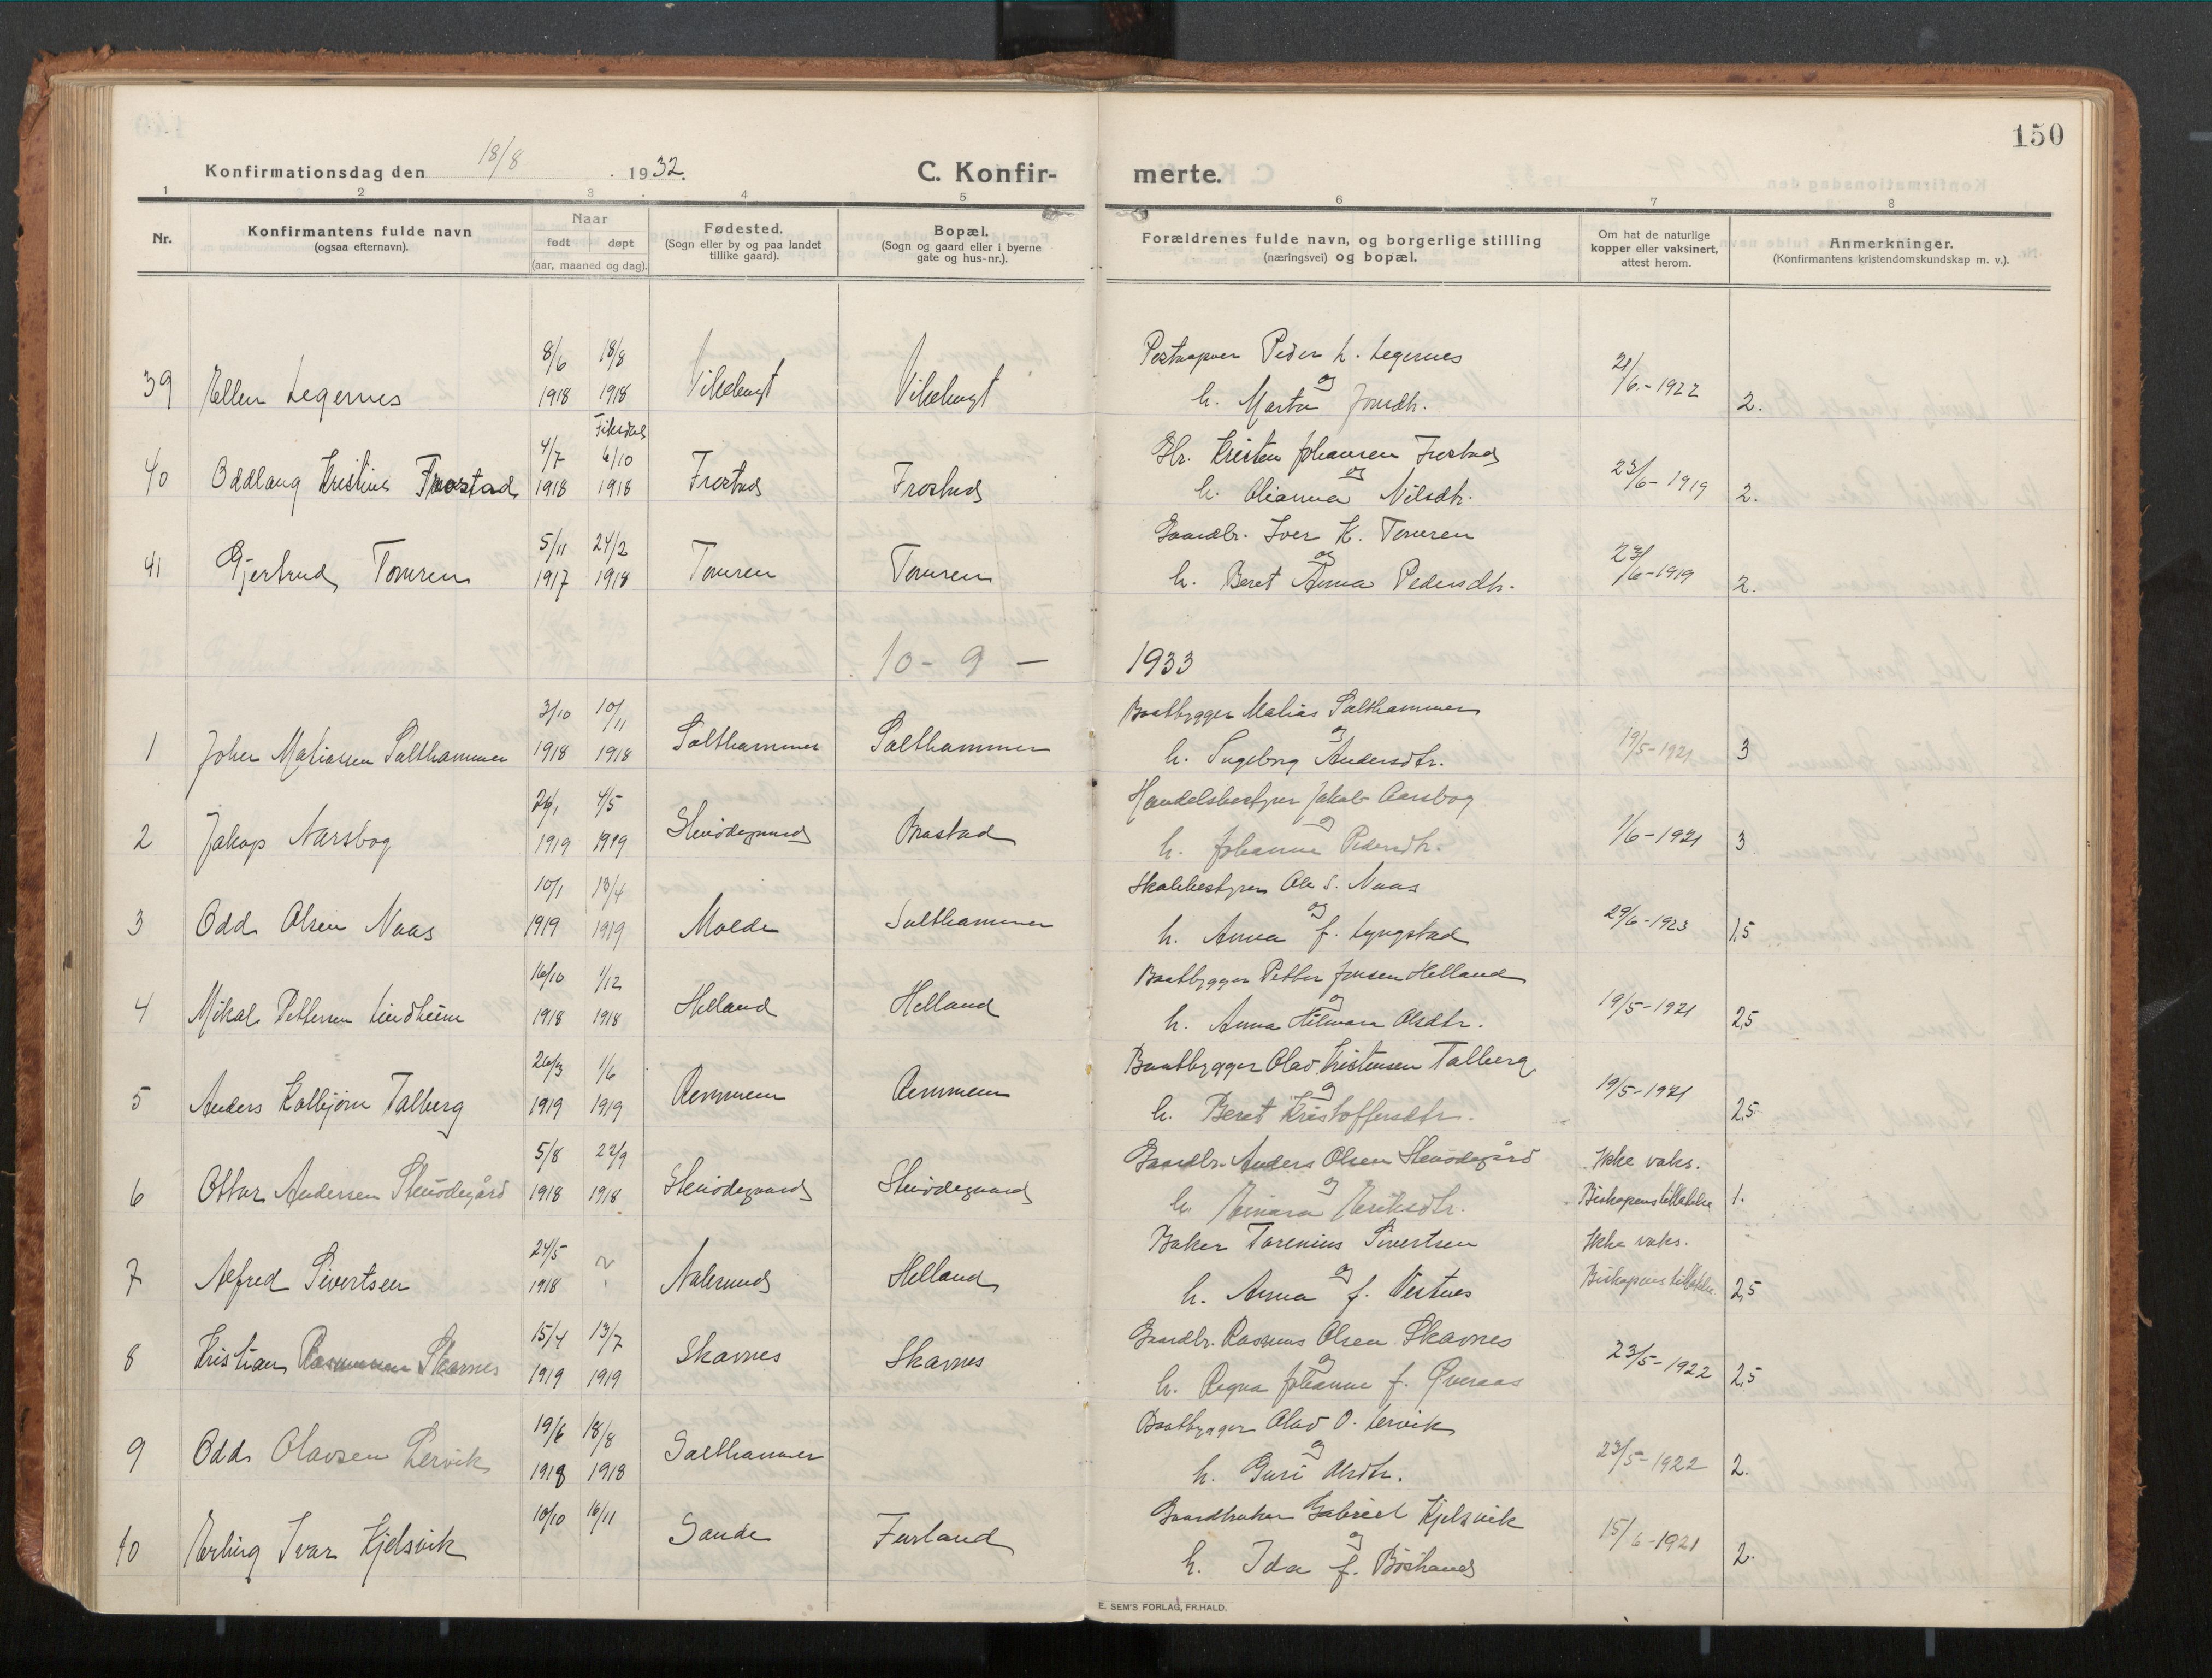 150
Konfirmationsdag den 18/8 1932. C. Konfir- merte.
1 2 3 4 5 6 7 8
Nr.
Konfirmantens fulde navn
(ogsaa efternavn).
Naar
født døpt
(aar, maaned og dag).
Fødested.
(Sogn eller by og paa landet
tillike gaard).
Bopæl.
(Sogn og gaard eller i byerne
gate og hus-nr.).
Forældrenes fulde navn, og borgerlige stilling
(næringsvei) og bopæl.
Om hat de naturlige
kopper eller vaksinert,
attest herom.
Anmerkninger.
(Konfirmantens kristendomskundskap m. v.).
8/6 18/8 Peder L. Legernes
39 Ellen Legernes 1918 1918 Vikebugt Vikebugt og 21/6-1922
h. Marta Jonsdtr. 2.
Fiksdal
4/7 6/10 Gbr. Kristen Johansen Frostad
40 Oddlaug Kristine Frostad 1918 1918 Frostad Frostad og 23/6-1919
h. Olianna Nilsdtr. 2.
5/11 24/2 Gaardbr. Iver K. Tomren
41 Gjertrud Tomren 1917 1918 Tomren Tomren og 23/6-1919
h. Beret Anna Pedersdtr. 2.
10-9- 1933
3/10 10/11 Baatbygger Matias Salthammer
1 Johan Matiassen Salthammer 1918 1918 Salthammer Salthammer og 19/5-1921 3
h. Ingeborg Andersdtr.
29/1 4/5 Handelsbestyrer Jakob Aarsbog
2 Jakop Aarsbog 1919 1919 Stenødegaard Brastad og 1/6-1921 3
h. Johanne Pedersdtr.
10/1 13/4 Skolebestyrer Ole S. Naas
3 Odd Olsen Naas 1919 1919 Molde Salthammer og 29/6-1923 1,5
h. Anna f. Lyngstad
16/10 1/12 Baatbygger Petter Jensen Helland
4 Mikal Pettersen Lindheim 1918 1918 Helland Helland og 19/5-1921 2,5
h. Anna Hilmara Olsdtr.
26/3 1/6 Baatbygger Olav Kristensen Talberg
5 Anders Kolbjørn Talberg 1919 1919 Remmem Remmem og 19/5-1921 2,5
h. Beret Kristoffersdtr.
5/8 22/9 Gaardbr. Anders Olsen Stenødegård Ikke vaks.
6 Ottar Andersen Stenødegård 1918 1918 Stenødegaard Stenødegaard og Biskopens tillatelse 1.
h. Einara Eriksdtr.
24/5 ? Baker Torenius Sivertsen Ikke vaks.
7 Alfred Sivertsen 1918 Aalesund Helland og Biskopens tillatelse 2,5
h. Anna f. Vestnes
15/4 13/7 Gaardbr. Rasmus Olsen Skavnes
8 Kristian Rasmussen Skavnes 1919 1919 Skavnes Skavnes og 23/5-1922 2,5
h. Ragna Johanne f. Øveraas
19/6 18/8 Baatbygger Olav O. Lervik
9 Odd Olavsen Lervik 1918 1918 Salthammer og 23/5-1922 2.
h. Guri Olsdtr.
10/10 16/11 Gaardbruker Gabriel Kjelsvik
10 Erling Ivar Kjelsvik Sande Furland og 15/6-1921 2.
h. Ida f. Bøshaug
E. SEM'S FORLAG, FR.HALD.